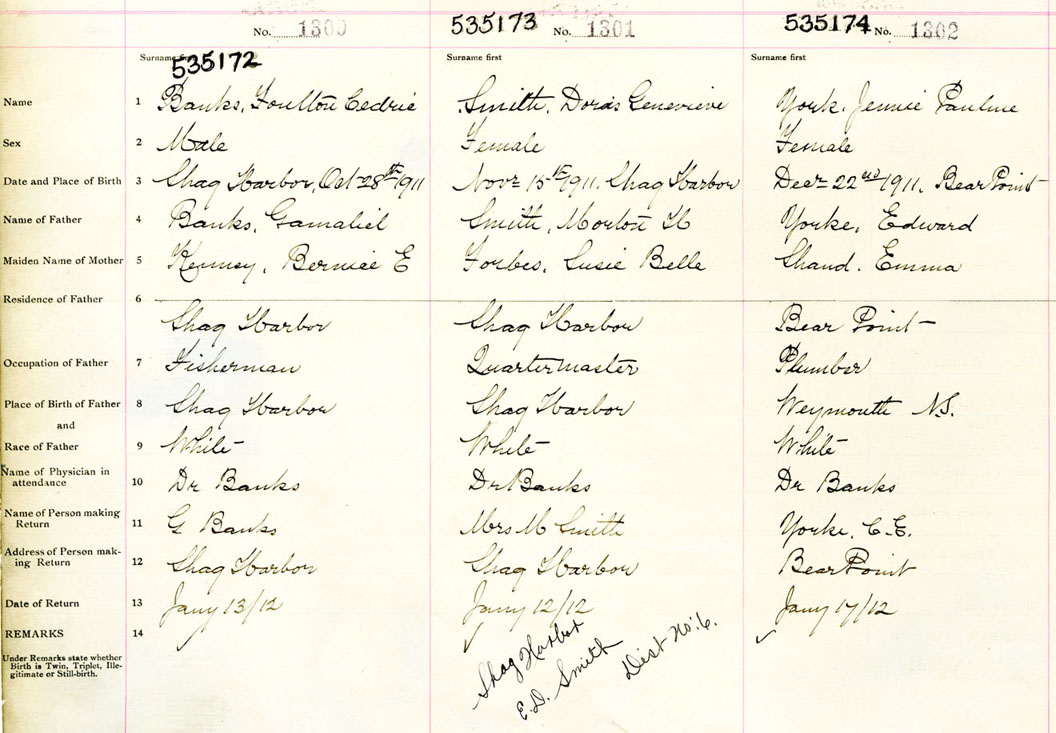 No. 1300 535173 No. 1301 535174 No. 1302
Surname first 535172 Surname first Surname first
Name 1 Banks, Foulton Cedric Smith, Doris Genevieve York, Jennie Pauline
Sex 2 Male Female Female
Date and Place of Birth 3 Shag Harbor, Oct 28th 1911 Novr 15th 1911. Shag Harbor Decr 22nd 1911, Bear Point
Name of Father 4 Banks, Gamaliel Smith, Morton H Yorke, Edward
Maiden Name of Mother 5 Kenney, Bernice E Forbes, Susie Belle Shand. Emma
Residence of Father 6
Shag Harbor Shag Harbor Bear Point
Occupation of Father 7 Fisherman Quartermaster Plumber
Place of Birth of Father 8 Shag Harbor Shag Harbor Weymouth N.S.
and
Race of Father 9 White White White
Name of Physician in
attendance 10 Dr Banks Dr Banks Dr Banks
Name of Person making
Return 11 G Banks Mrs M Smith Yorke, C.E.
Address of Person mak-
ing Return 12 Shag Harbor Shag Harbor Bear Point
Date of Return 13 Jany 13/12 Jany 12/12 Jany 17/12
REMARKS 14
Under Remarks state whether
Birth is Twin, Triplet, Ille-
gitimate or Still-birth.
Shag Harbor
E.D. Smith
Dist No. 6.